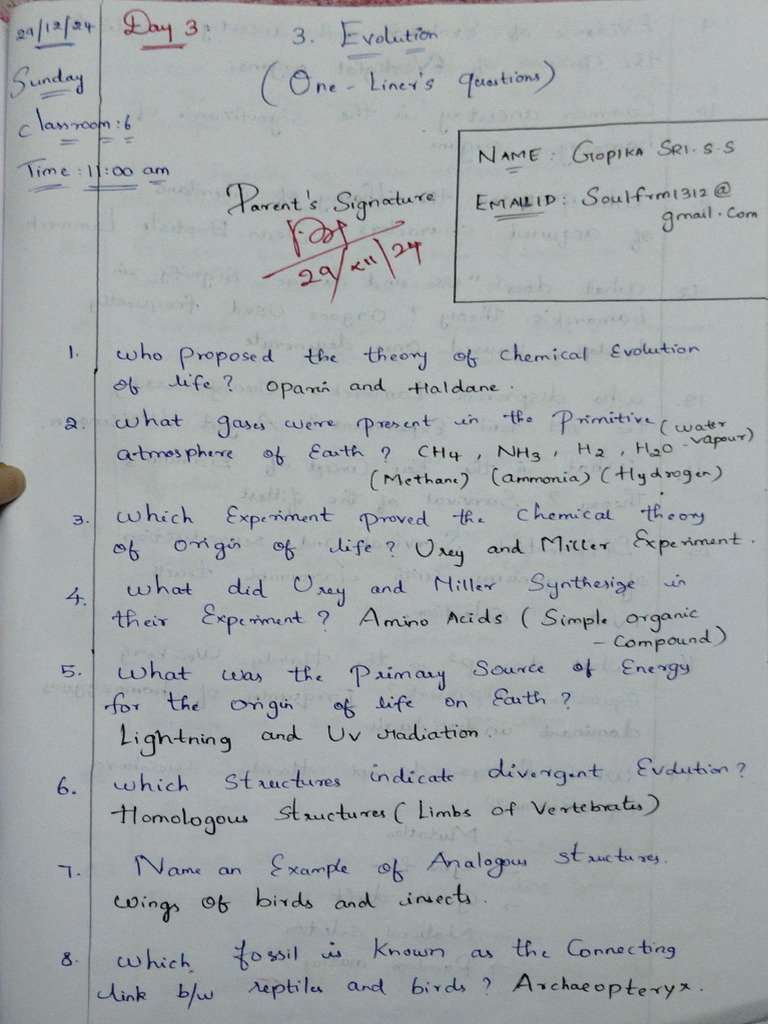 29/12/24
Day 3:
3. Evolution
Sunday
(One-Liner's questions)
Classroom: 6
Time: 11:00 am
NAME: GOPIKA SRI. S. S
EMAILID: Soulfrm1312@
gmail.com
Parent's Signature
29/XII/24
1. Who proposed the theory of chemical Evolution
of life? Oparin and Haldane.
2. What gases were present in the Primitive (water
atmosphere of Earth? CH4, NH3, H2, H2O - vapour)
(Methane) (ammonia) (Hydrogen)
3. Which Experiment proved the chemical theory
of origin of life? Urey and Miller Experiment.
4. What did Urey and Miller Synthesize in
their Experiment? Amino Acids (Simple organic
- Compound)
5. What was the Primary Source of Energy
for the origin of life on Earth?
Lightning and UV radiation.
6. which structures indicate divergent Evolution?
Homologous structures (Limbs of Vertebrates)
7. Name an Example of Analogous structures.
Wings of birds and insects.
8. which fossil is known as the Connecting
link b/w reptiles and birds? Archaeopteryx.